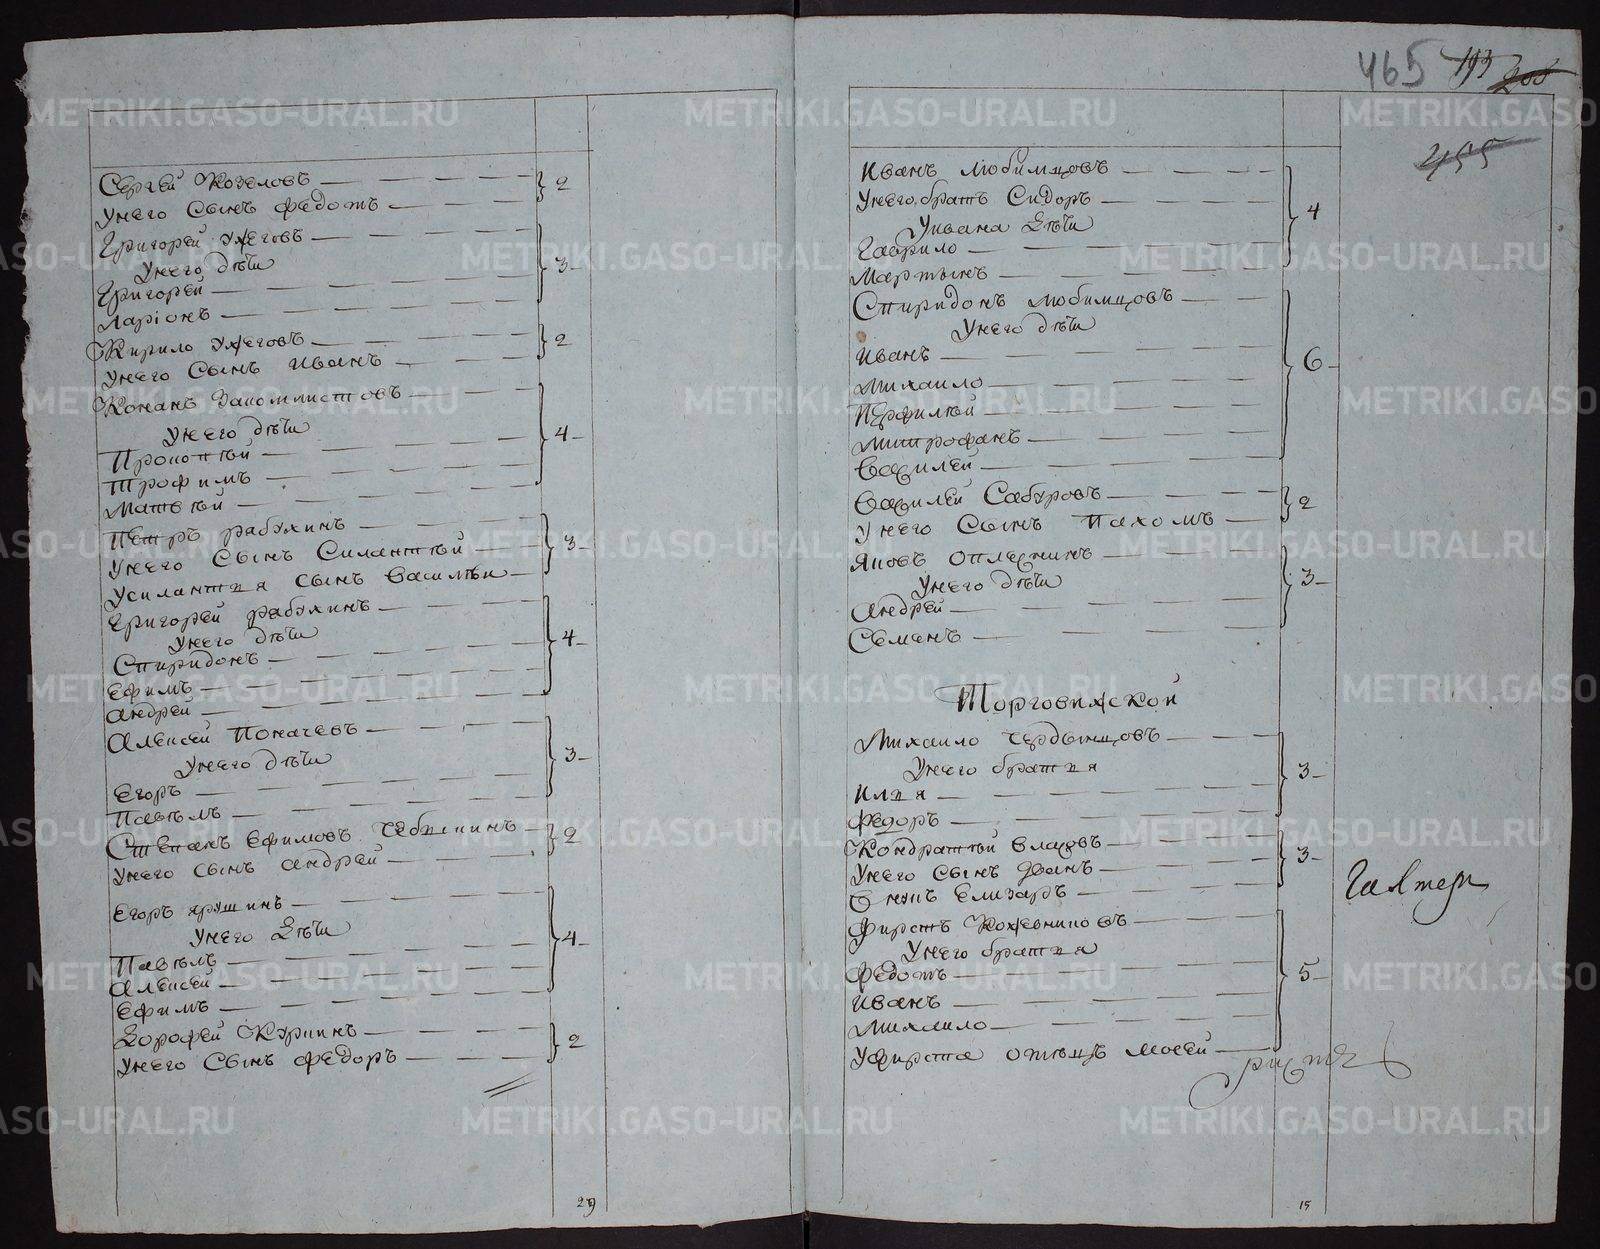 Сергей Козеловъ 2
Унего Сынъ Федотъ
Григорей Ужеговъ 3
Унего дѣти
Григорей
Ларіонъ
Кирило Ужеговъ 2
Унего Сынъ Иванъ
Конанъ
Унего дѣти 4
Прокопѣй
Трофимъ
Матвѣй
Петръ рабухинъ
Унего Сынъ Силантѣй 3
Усилантия сынъ Василѣи
Григорей рабухинъ
Унего дѣти 4
Спиридонъ
Ефимъ
Андрей
Алексей Покачевъ
Унего дѣти 3
Егоръ
Павѣлъ
Степанъ Ефимовъ 2
Унего сынъ Андрей
Егоръ ярушинъ
Унего дѣти 4
Павѣлъ
Алексей
Ефимъ
Дорофей Куркинъ 2
Унего Сынъ Федоръ
29
465 193 208
455
Иванъ Любимцовъ
Унего братъ Сидоръ 4
Уивана дѣти
Гаврило
Мартынъ
Спиридонъ Любимцовъ
Унего дѣти
Иванъ 6
Михаило
Перфилѣй
Митрофанъ
Василей
Василей Сабуровъ 2
Унего Сынъ Пахомъ
Яковъ Оплеснинъ
Унего дѣти 3
Андрей
Семенъ
Торговижской
Михаило Чердынцовъ
Унего братия 3
Илия
Федоръ
Кондратѣй Власовъ
Унего Сынъ Иванъ 3
Внукъ Елизаръ
Фирстъ Кожевниковъ
Унего братия
Федотъ 5
Иванъ
Михаило
Уфирста отецъ Мосей
15
METRIKI.GASO-URAL.RU